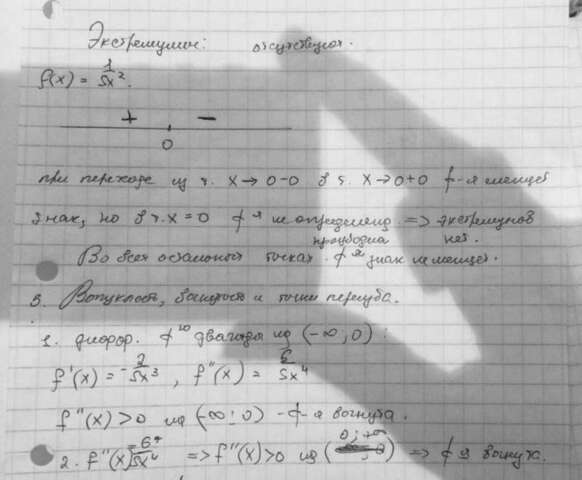 Экстремумы: отсутствуют.
f(x) = 1/5x².
+ −
0
при переходе из т. x→0-0 в т. x→0+0 ф-я меняет
знак, но в т. x=0 ф-я не определена. => экстремумов нет.
Во всех остальных точках производная ф-я знак не меняет.
3. Выпуклость, вогнутость и точки перегиба.
1. диффер. ф-ю дважды на (-∞; 0):
f'(x) = -2/5x³, f''(x) = 6/5x⁴
f''(x) > 0 на (-∞; 0) - ф-я вогнута.
2. f''(x) = 6/5x⁴ => f''(x) > 0 на (0; +∞) => ф-я вогнута.